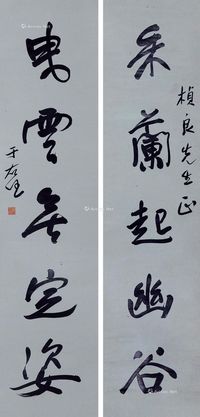 楨良先生正
采蘭起幽谷
曳雲無定姿
于右任